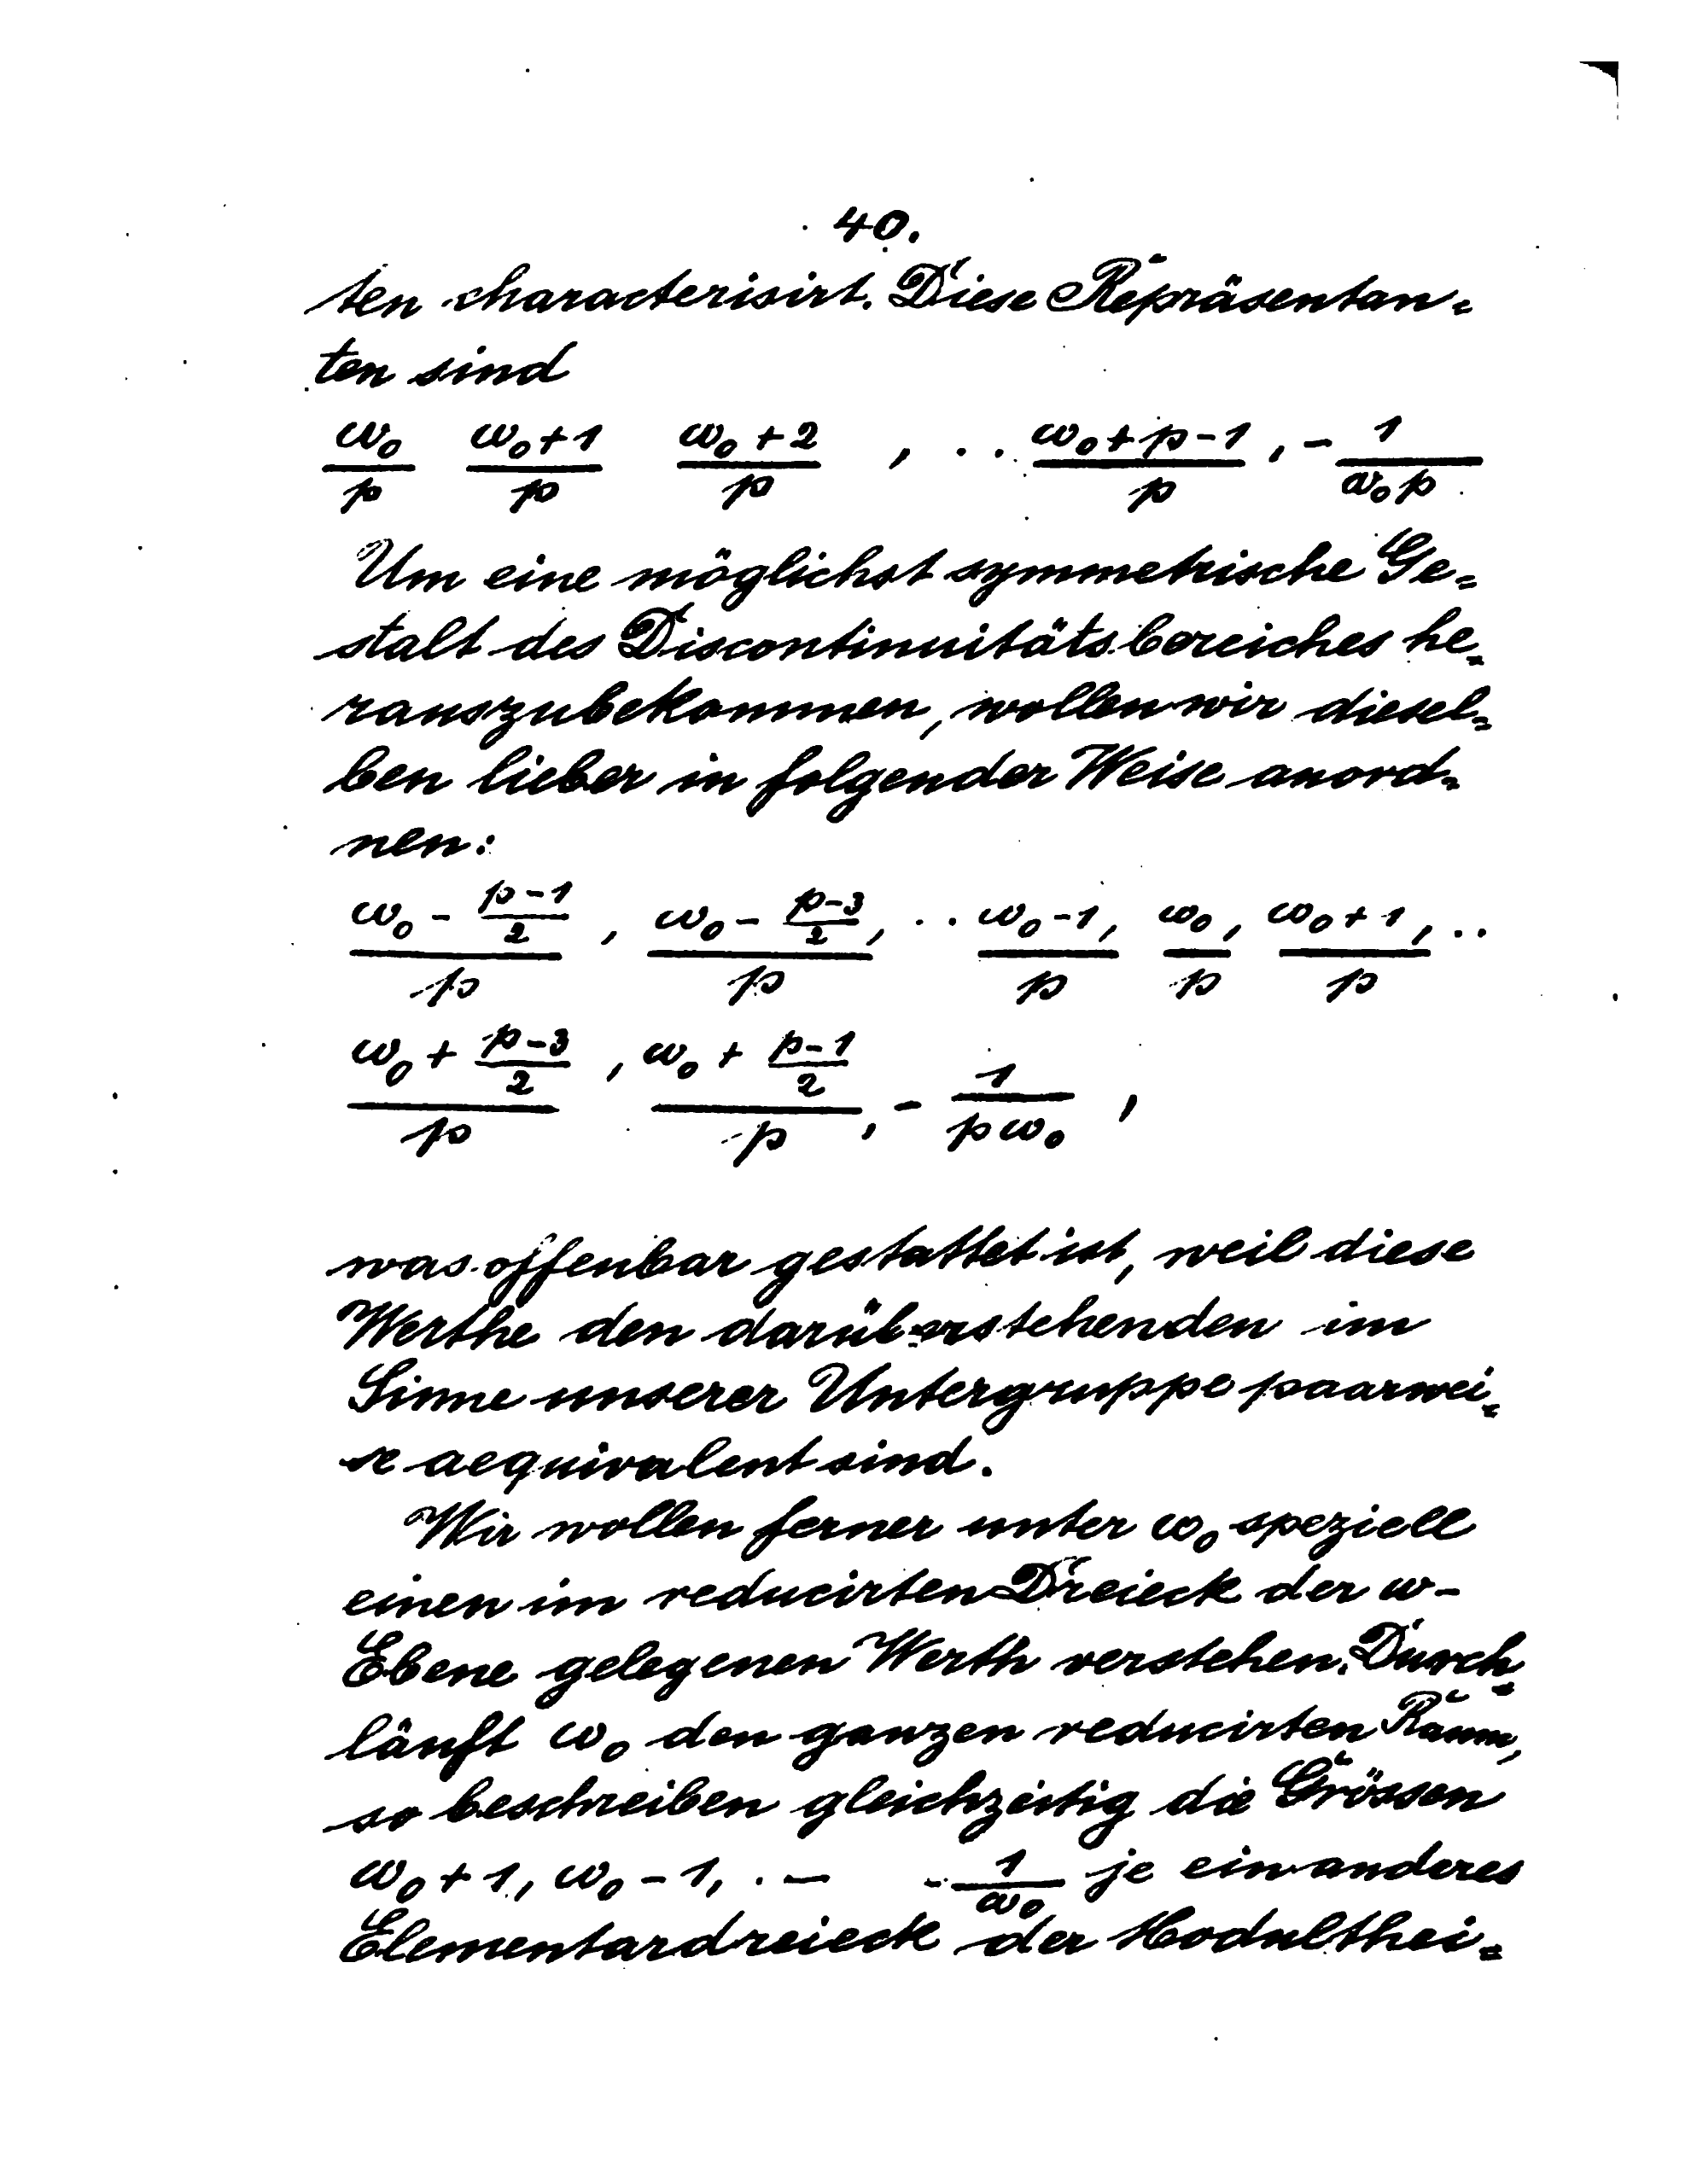 40.
ten characterisirt. Diese Repräsentan=
ten sind
ω₀/p (ω₀+1)/p (ω₀+2)/p , .. (ω₀+p-1)/p , - 1/(ω₀p)
Um eine möglichst symmetrische Ge=
stalt des Discontinuitätsbereiches he=
rauszubekommen, wollen wir diesel=
ben lieber in folgender Weise anord=
nen:
(ω₀ - (p-1)/2)/p , (ω₀ - (p-3)/2)/p , .. (ω₀-1)/p , ω₀/p , (ω₀+1)/p , ..
(ω₀ + (p-3)/2)/p , (ω₀ + (p-1)/2)/p , - 1/(pω₀) ,
was offenbar gestattet ist, weil diese
Werthe den darüberstehenden im
Sinne unserer Untergruppe paarwei=
se aequivalent sind.
Wir wollen ferner unter ω₀ speziell
einen im reducirten Dreieck der ω-
Ebene gelegenen Werth verstehen. Durch=
läuft ω₀ den ganzen reducirten Raum,
so beschreiben gleichzeitig die Grössen
ω₀+1, ω₀-1, . — - 1/ω₀ je ein anderes
Elementardreieck der Modulthei=